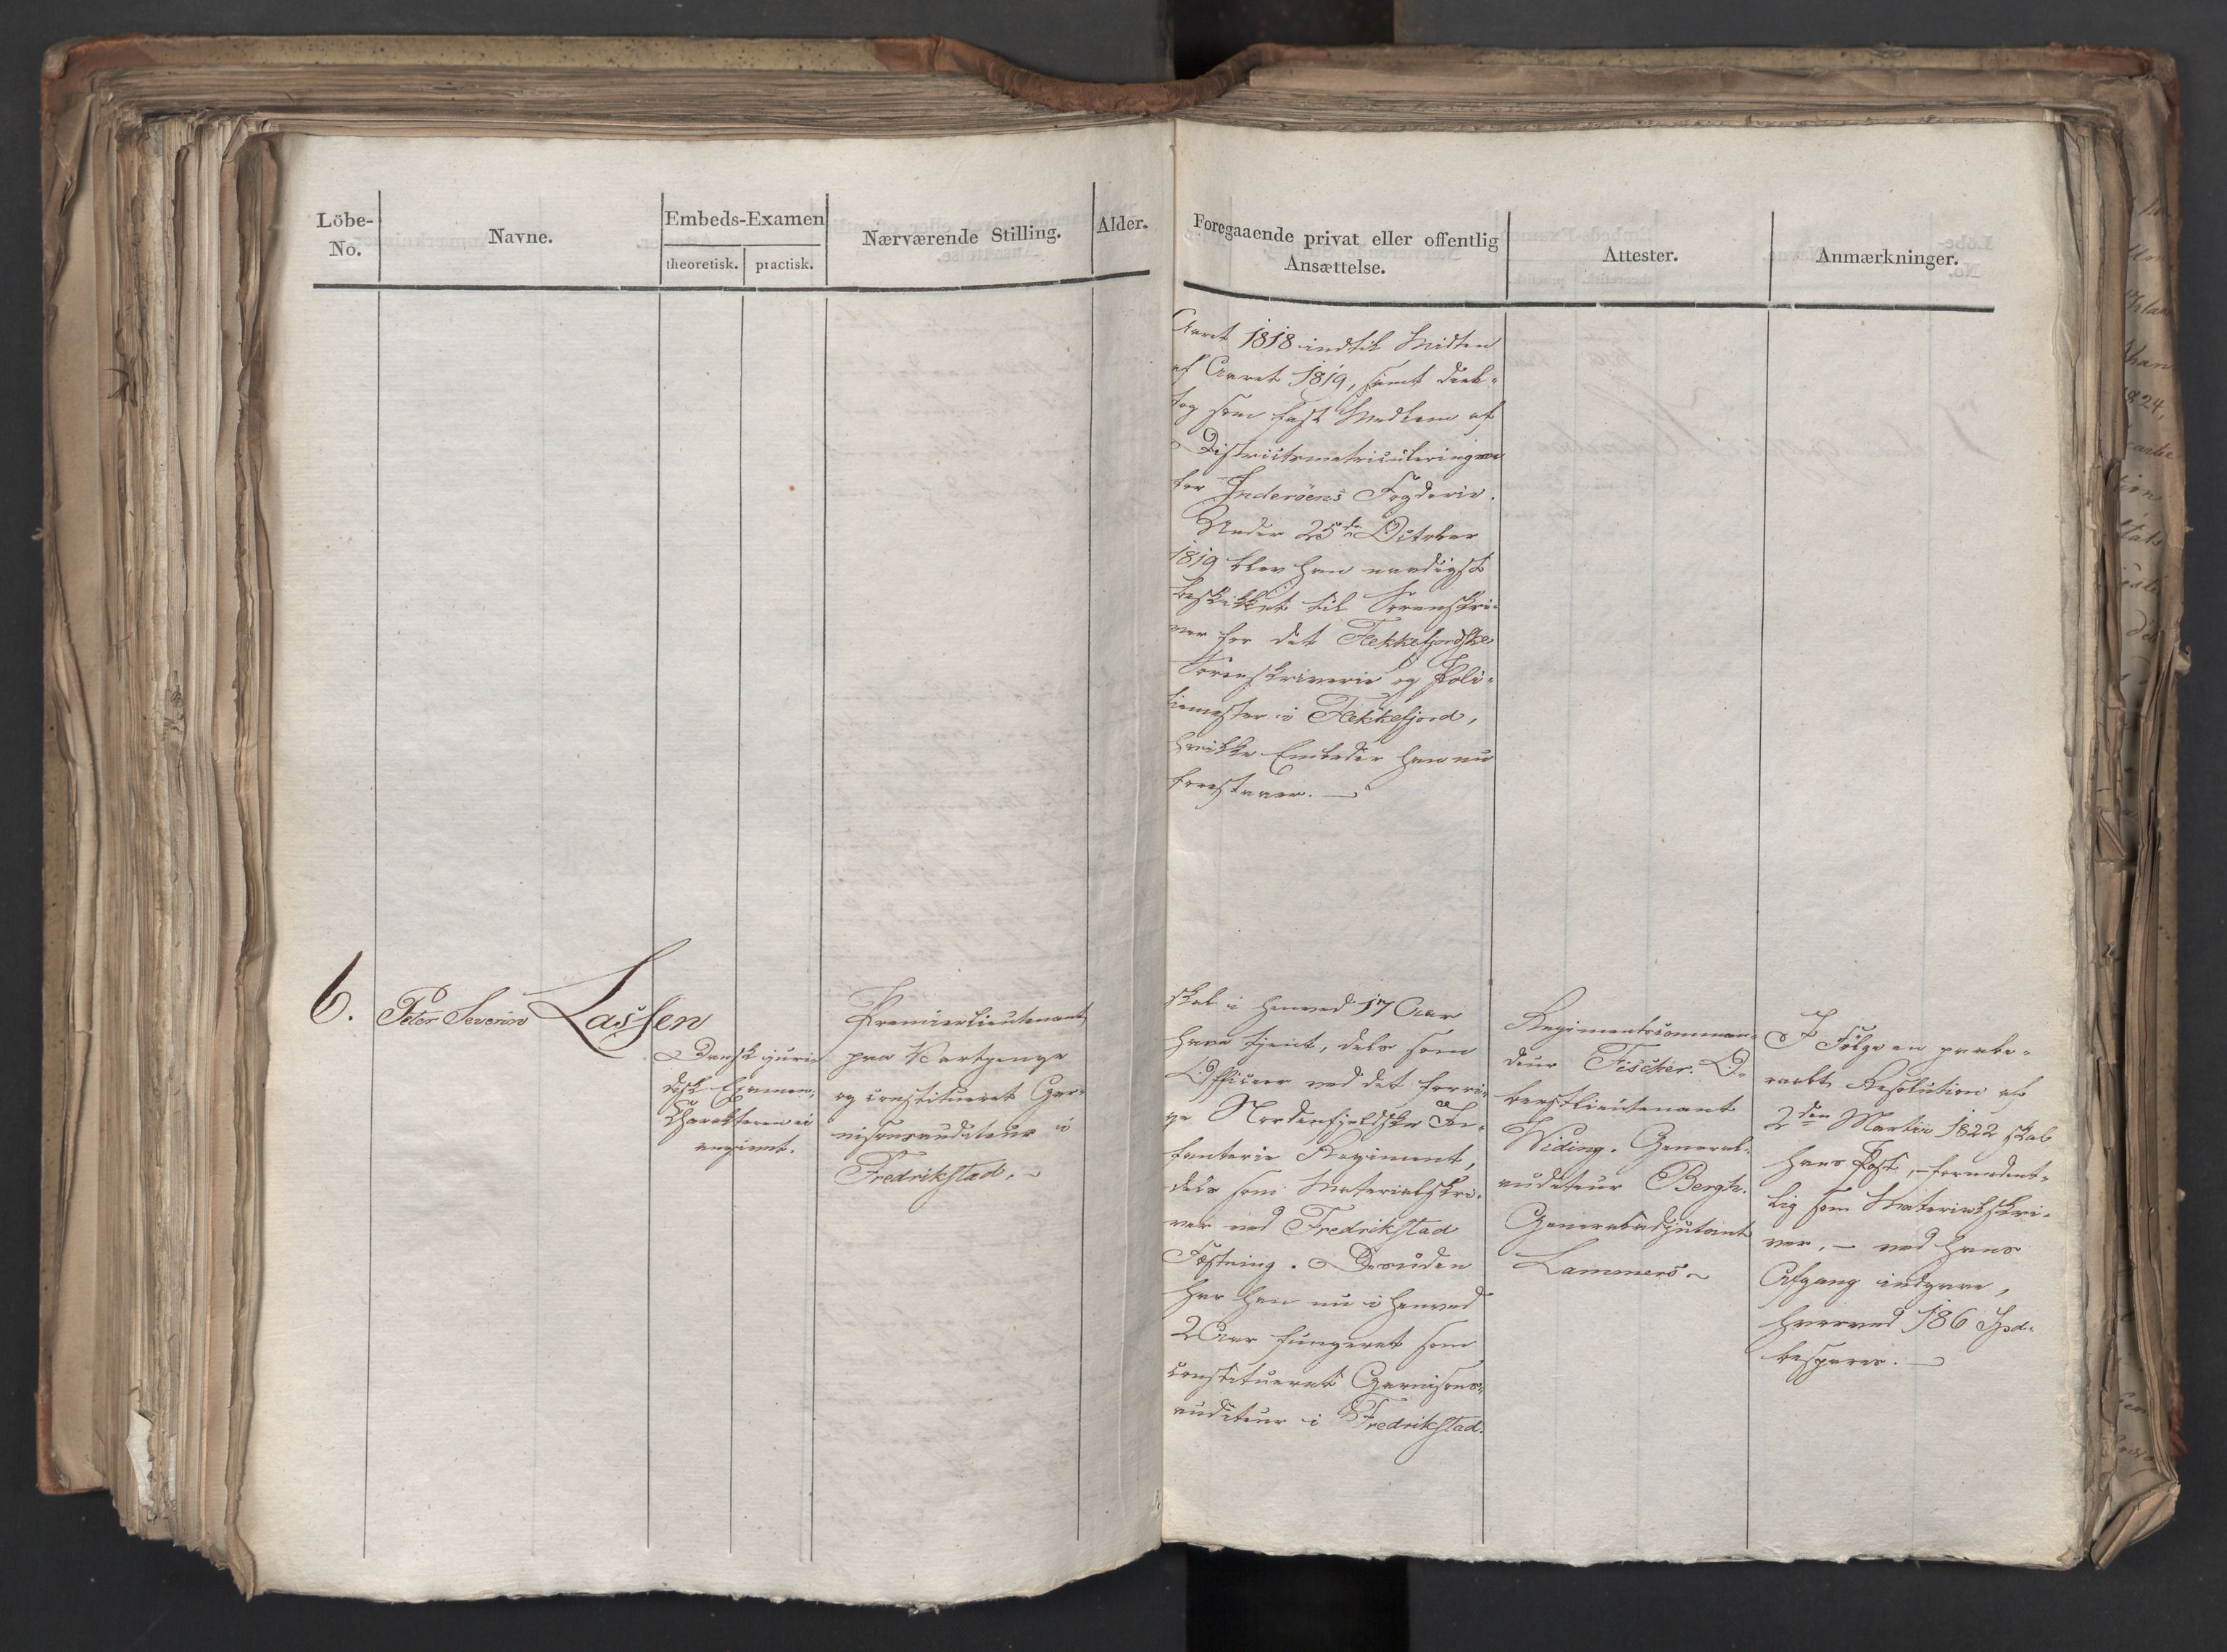 Löbe-
No.
Navne.
Embeds-Examen
theoretisk. practisk.
Nærværende Stilling.
Alder.
Foregaaende privat eller offentlig
Ansættelse.
Attester.
Anmærkninger.
Aaret 1818 indtil Midten
af Aaret 1819, samt deel-
tog som fast Medlem af
Districtsmatriculeringen
for Inderöens Fogderie.
Under 25de October
1819 blev han naadigst
beskikket til Sorenskri-
ver for det Flekkefjordske
Sorenskriverie og Poli-
tiemester i Flekkefjord,
hvilke Embeder han nu
forestaaer. —
6.
Peter Severin Lassen
Dansk juri-
disk Examen,
Charakteren ei
angivet.
Premierlieutenant
paa Vartpenge
og constitueret Gar-
nisonsauditeur i
Fredrikstad. ~
skal i henved 17 Aar
have tjent, dels som
Officeer ved det forri-
ge Nordenfjeldske In-
fanterie Regiment,
dels som Materialskri-
ver ved Fredrikstad
Fæstning. Desuden
har han nu i henved
2 Aar fungeret som
constitueret Garnisons-
auditeur i Fredrikstad.
Regimentscomman-
deur Fischer. O-
berstlieutenant
Widing. General-
auditeur Bergh.
Generaladjutant
Lammers ~
I Følge en paabe-
raabt Resolution af
2den Martii 1822 skal
hans Post, — formodent-
lig som Materialskri-
ver, — ved hans
Afgang indgaae,
hvorved 186 Spd.
bespares. —